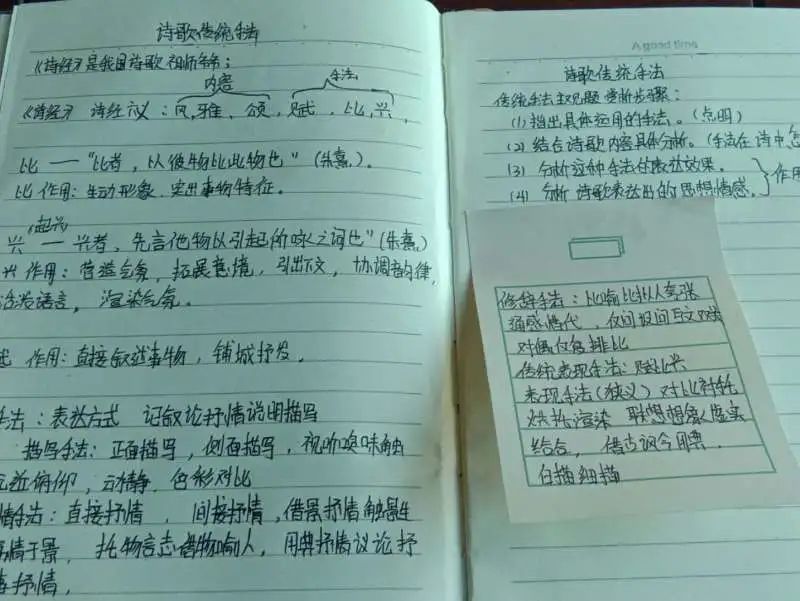 诗歌传统手法
《诗经》是我国诗歌
内容 手法
《诗经》 诗经六义：风，雅，颂，赋，比，兴，
比 — "比者，以彼物比此物也"（朱熹）。
比 作用：生动形象，突出事物特征。
起兴
兴 — 兴者，先言他物以引起所咏之词也"（朱熹）
兴 作用：营造气氛，拓展意境，引出下文，协调音韵律，
活泼语言，渲染气氛。
作用：直接叙述事物，铺城抒发。
手法：表达方式 记叙论抒情说明描写
描写手法：正面描写，侧面描写，视听嗅味触
远近俯仰，动静，色彩对比
情手法：直接抒情，间接抒情，借景抒情触景生
情于景，托物言志借物喻人，用典抒情议论抒
事抒情，
A good time
诗歌传统手法
传统手法 题 赏析步骤：
(1) 指出具体运用的手法。（点明）
(2) 结合诗歌内容具体分析。（手法在诗中怎
(3) 分析这种手法的表达效果。
(4) 分析诗歌表达出的思想情感。 作用
修辞手法：比喻比拟人夸张
通感借代，反问设问互文双关
对偶反复排比
传统表现手法：赋比兴
表现手法（狭义）对比衬托
烘托渲染 联想想象虚实
结合，借古讽今用典
白描细描